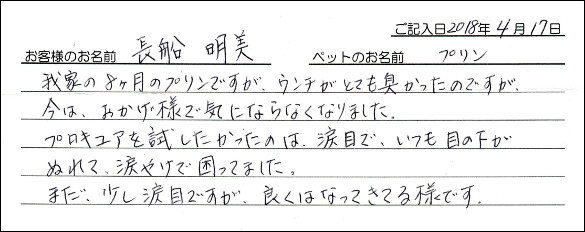 ご記入日2018年4月17日
お客様のお名前 長船 明美 ペットのお名前 プリン
我家の8ヶ月のプリンですが、ウンチがとても臭かったのですが、
今は、おかげ様で気にならなくなりました。
プロキュアを試したかったのは、涙目で、いつも目の下が
ぬれて、涙やけで困ってました。
まだ、少し涙目ですが、良くはなってきてる様です。